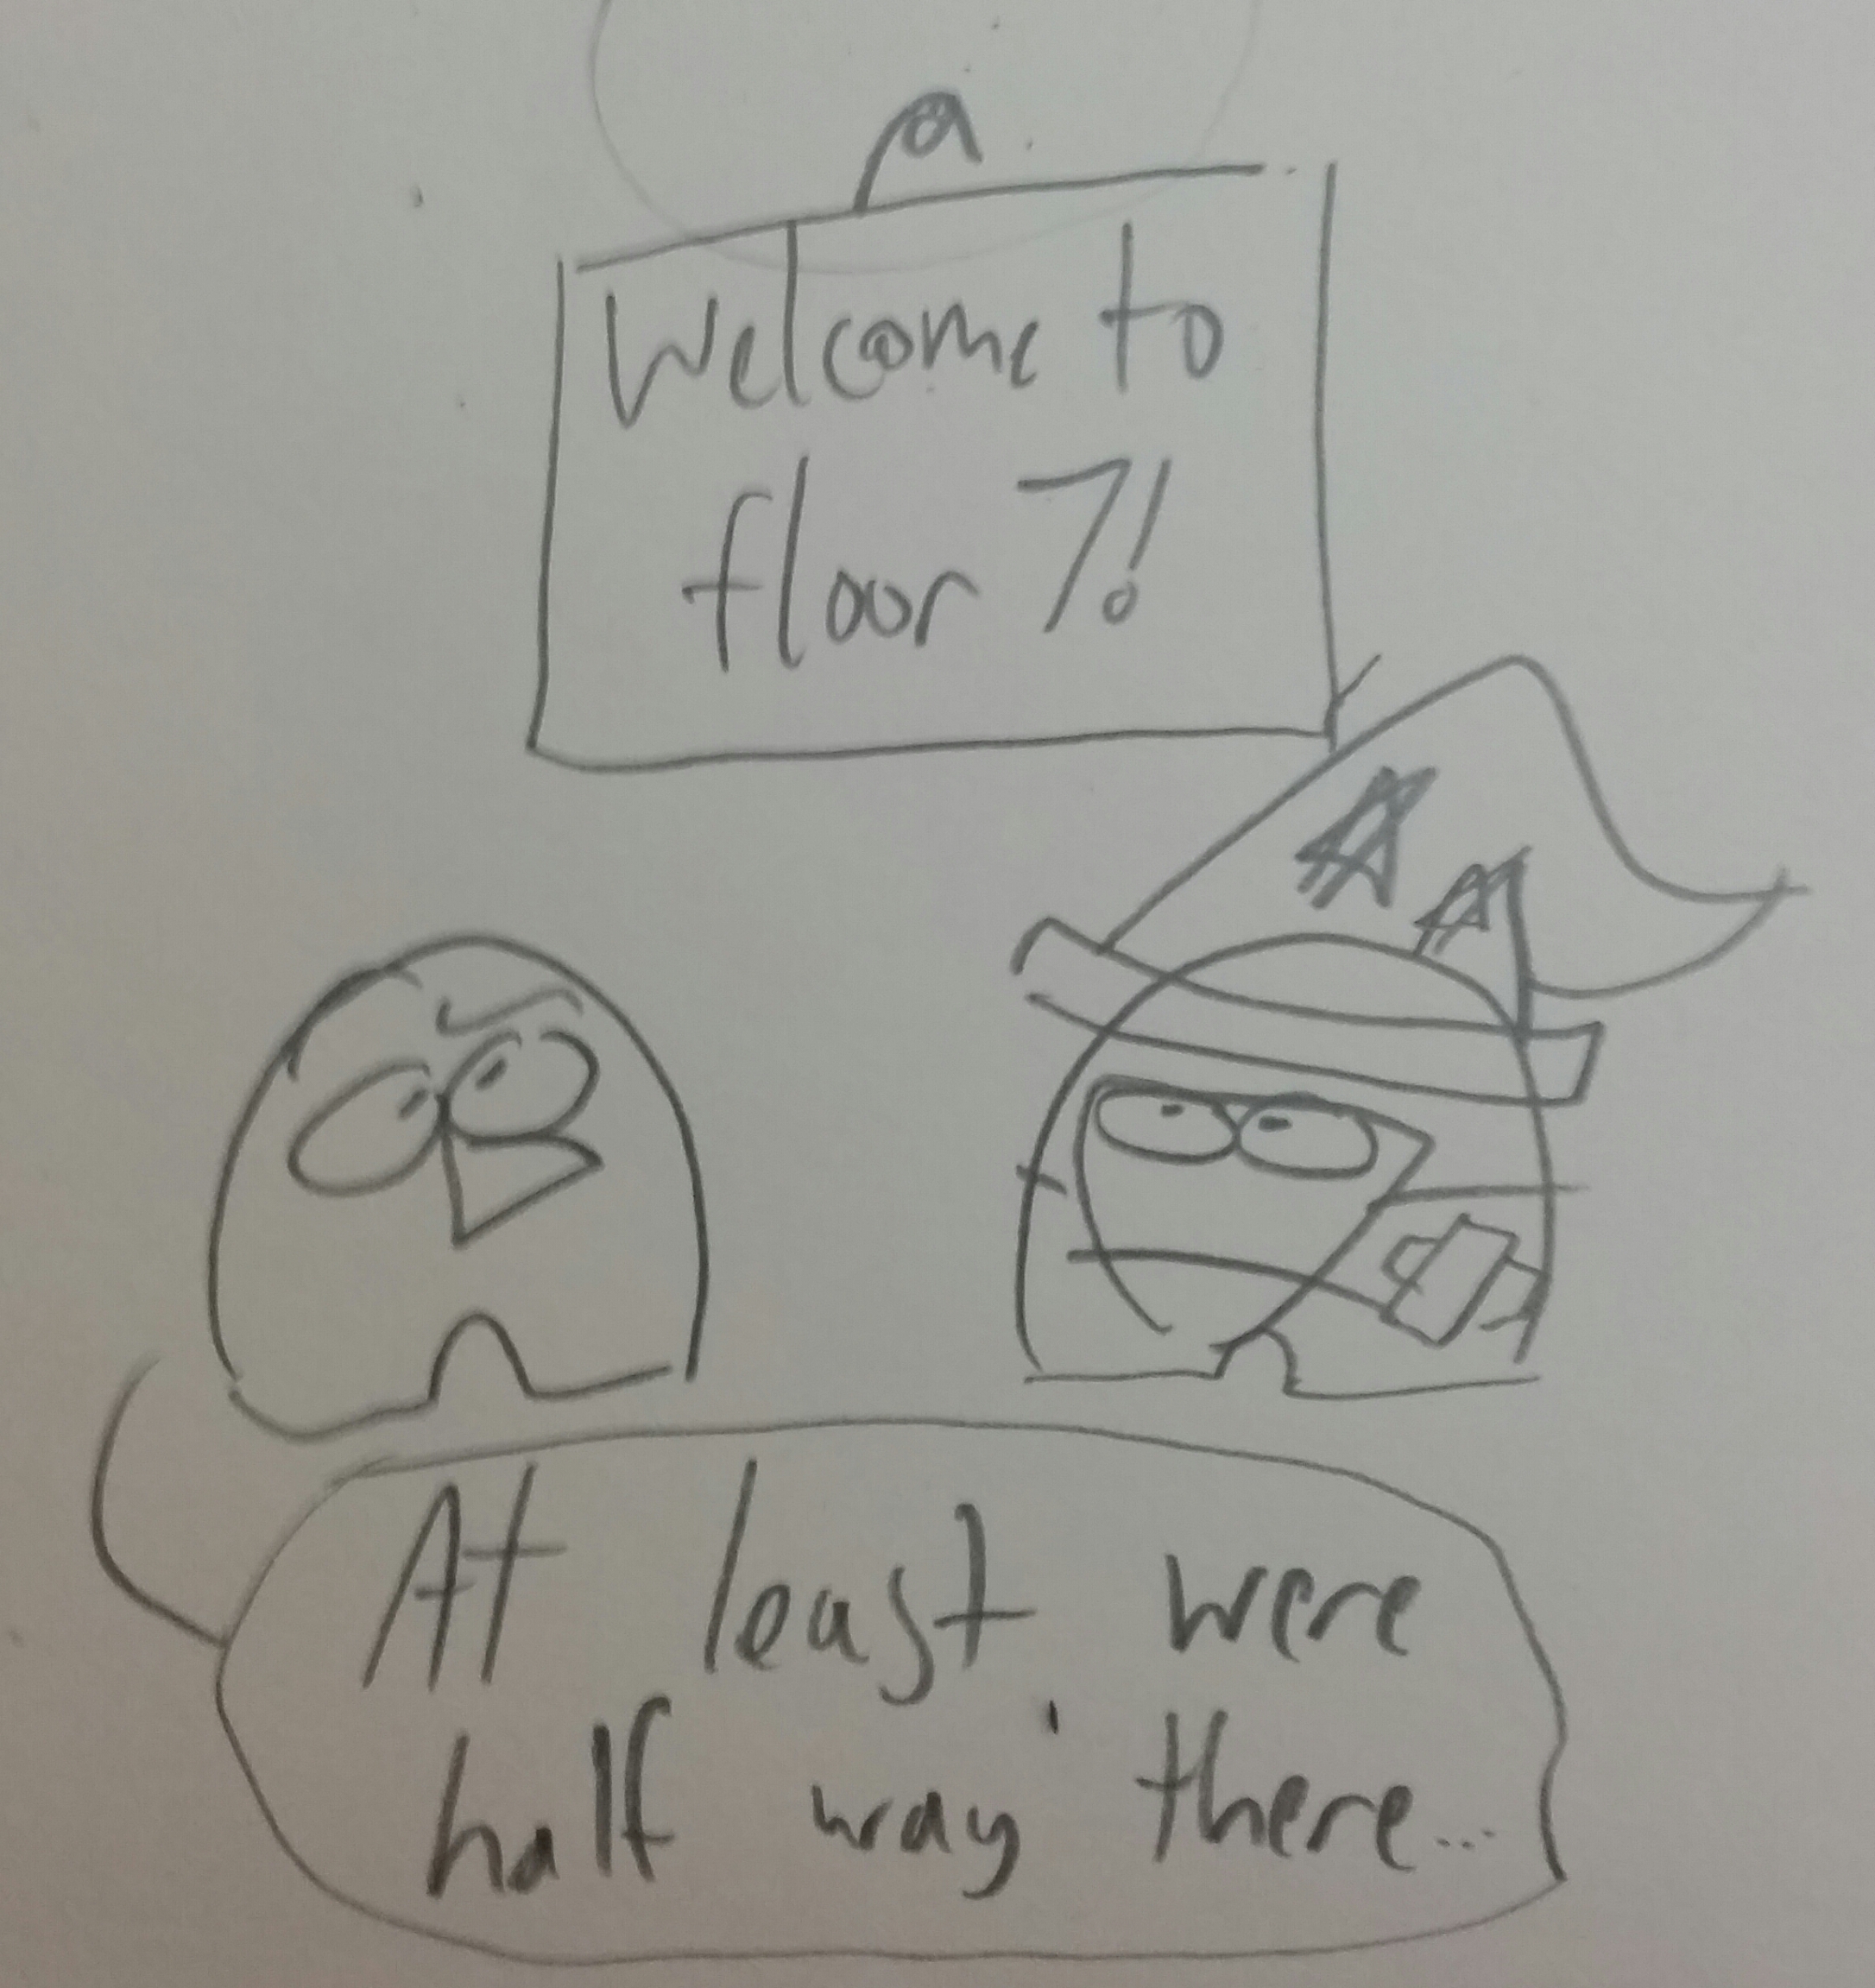 Welcome to
floor 7!
At least were
half way there...